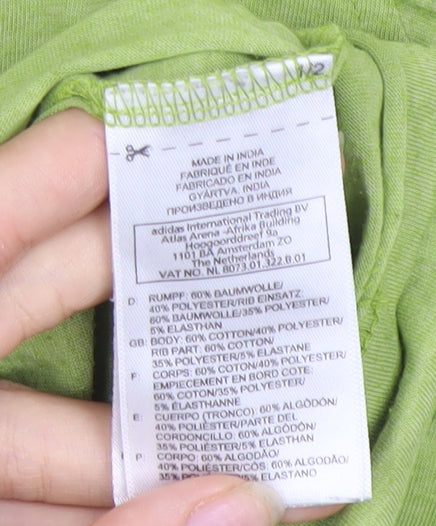 1/2
MADE IN INDIA
FABRIQUÉ EN INDE
FABRICADO EN INDIA
GYÁRTVA, INDIA
ПРОИЗВЕДЕНО В ИНДИЯ
adidas International Trading BV
Atlas Arena -Afrika Building
Hoogoorddreef 9a
1101 BA Amsterdam ZO
The Netherlands
VAT NO. NL 8073.01.322.B.01
D: RUMPF: 60% BAUMWOLLE/
40% POLYESTER/RIB EINSATZ:
60% BAUMWOLLE/35% POLYESTER/
5% ELASTHAN
GB: BODY: 60% COTTON/40% POLYESTER/
RIB PART: 60% COTTON/
35% POLYESTER/5% ELASTANE
F: CORPS: 60% COTON/40% POLYESTER/
EMPIECEMENT EN BORD COTE:
60% COTON/35% POLYESTER/
5% ÉLASTHANNE
E: CUERPO (TRONCO): 60% ALGODÓN/
40% POLIÉSTER/PARTE DEL
CORDONCILLO: 60% ALGODÓN/
35% POLIÉSTER/5% ELASTHAN
P: CORPO: 60% ALGODÃO/
40% POLIÉSTER/CÓS: 60% ALGODÃO/
35% POLIÉSTER/5% ELASTANO